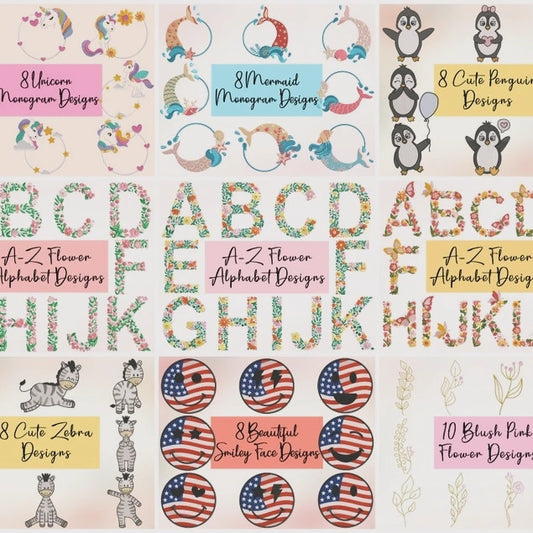 8 Unicorn
Monogram Designs
8 Mermaid
Monogram Designs
8 Cute Penguin
Designs
B C D
A-Z Flower
Alphabet Designs
F
H I J K
A B C D
A-Z Flower
Alphabet Designs
E F
G H I J K
A B C D
A-Z Flower
Alphabet Designs
F
H I J K L
8 Cute Zebra
Designs
8 Beautiful
Smiley Face Designs
10 Blush Pink
Flower Designs